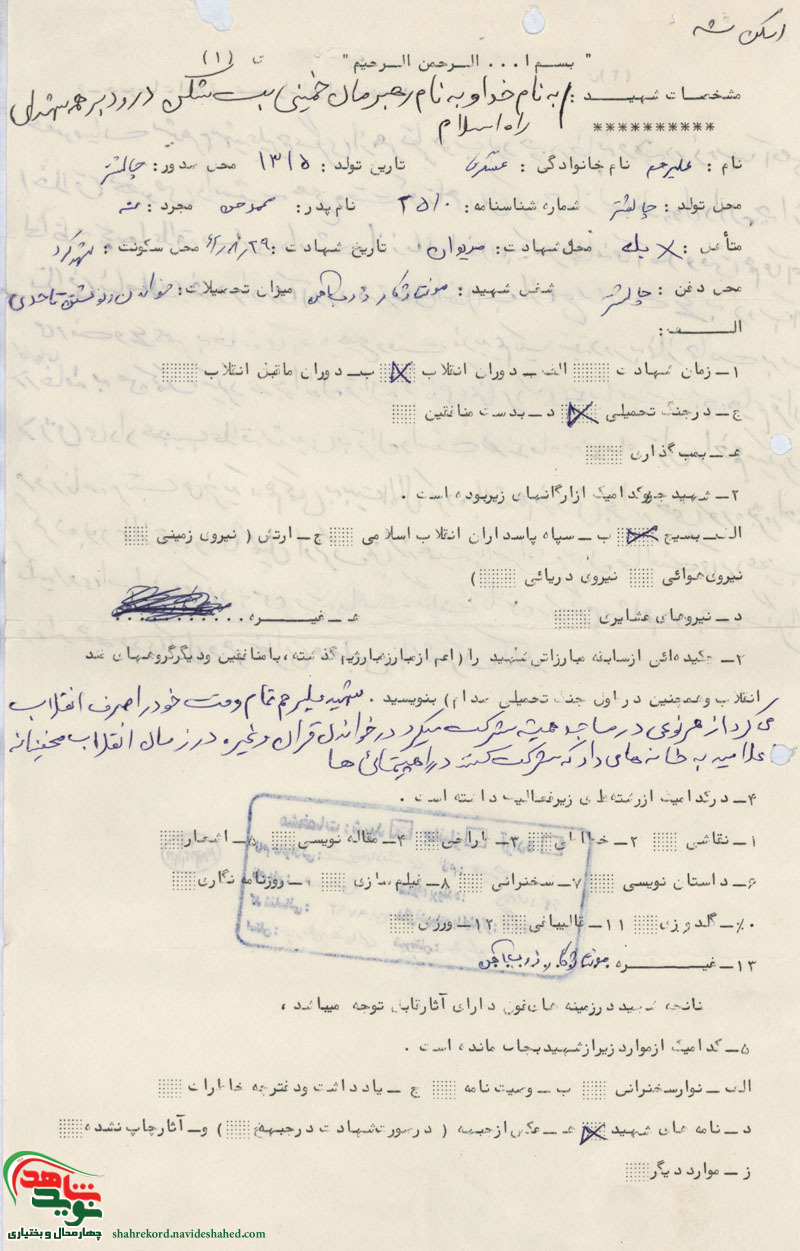 اسکن شد
" بسم ا... الرحمن الرحیم " (۱)
مشخصات شهید : به نام خدا و به نام رهبرمان خمینی بت شکن درود بر همه شهدای
راه اسلام
**********
نام : علیرحم نام خانوادگی : عسگری تاریخ تولد : ۱۳۱۵ محل صدور : چالشتر
محل تولد : چالشتر شماره شناسنامه : ۲۵۱۰ نام پدر : مجرد :
متأهل : × محل شهادت : مریوان تاریخ شهادت : محل سکونت : شهرکرد
محل دفن : چالشتر شغل شهید : مونتاژکار میزان تحصیلات : خواندن و نوشتن تا حدی
الف :
۱ـ زمان شهادت الف ـ دوران انقلاب ب ـ دوران ماقبل انقلاب
ج ـ درجنگ تحمیلی د ـ بدست منافقین
ه ـ بمب گذاری
۲ـ شهید جزو کدامیک ازارگانهای زیربوده است .
الف ـ بسیج ب ـ سپاه پاسداران انقلاب اسلامی ج ـ ارتش ( نیروی زمینی
نیروی هوائی نیروی دریائی )
د ـ نیروهای عشایری ه ـ غیره ...........
۳ـ چکیده‌ائی ازسابقه مبارزاتی شهید را ( اعم ازمبارزه بارژیم گذشته ، با منافقین ودیگرگروههای ضد
انقلاب وهمچنین در اول جنگ تحمیلی صدام ) بنویسید . شهید علیرحم تمام وقت خود را صرف انقلاب
می کرد از هر نوعی در مساجد همیشه شرکت میکرد در خواندن قرآن و غیره در زمان انقلاب مخفیانه
اعلامیه به خانه های داد که شرکت کنند در راهپیمائی ها
۴ـ درکدامیک ازرشته‌های زیرفعالیت داشته است .
۱ـ نقاشی ۲ـ خطاطی ۳ـ طراحی ۴ـ مقاله نویسی ۵ـ اشعار
۶ـ داستان نویسی ۷ـ سخنرانی ۸ـ فیلم سازی ۹ـ روزنامه نگاری
۱۰ـ گلدوزی ۱۱ـ قالیبافی ۱۲ـ ورزش
۱۳ـ غیره مونتاژکار
چنانچه شهید درزمینه های فوق دارای آثارقابل توجه میباشد ،
۵ـ کدامیک ازموارد زیرازشهید بجای مانده است .
الف ـ نوارسخنرانی ب ـ وصیت نامه ج ـ یادداشت ودفترچه خاطرات
د ـ نامه های شهید ه ـ عکس ازجبهه ( درصورت شهادت درجبهه ) و ـ آثارچاپ نشده
ز ـ موارد دیگر
نوید شاهد
چهارمحال و بختیاری
shahrekord.navideshahed.com